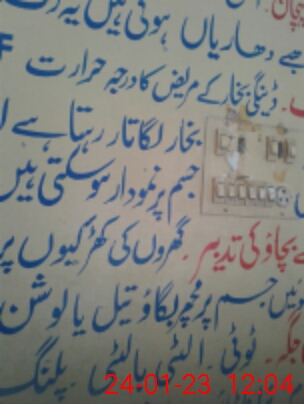 پہچان
جسے دھاریاں ہوتی ہیں یہ
ڈینگی بخار کے مریض کا درجہ حرارت F
بخار لگاتار رہتا ہے
جسم پر نمودار ہوسکتی ہیں
بچاؤ کی تدابیر۔ گھروں کی کھڑکیوں پر
جسم پر مچھر بھگاؤ تیل یا لوشن
جگہ۔ ٹوٹی۔ الٹی بالٹیاں۔ پلنگ
24-01-23 12:04